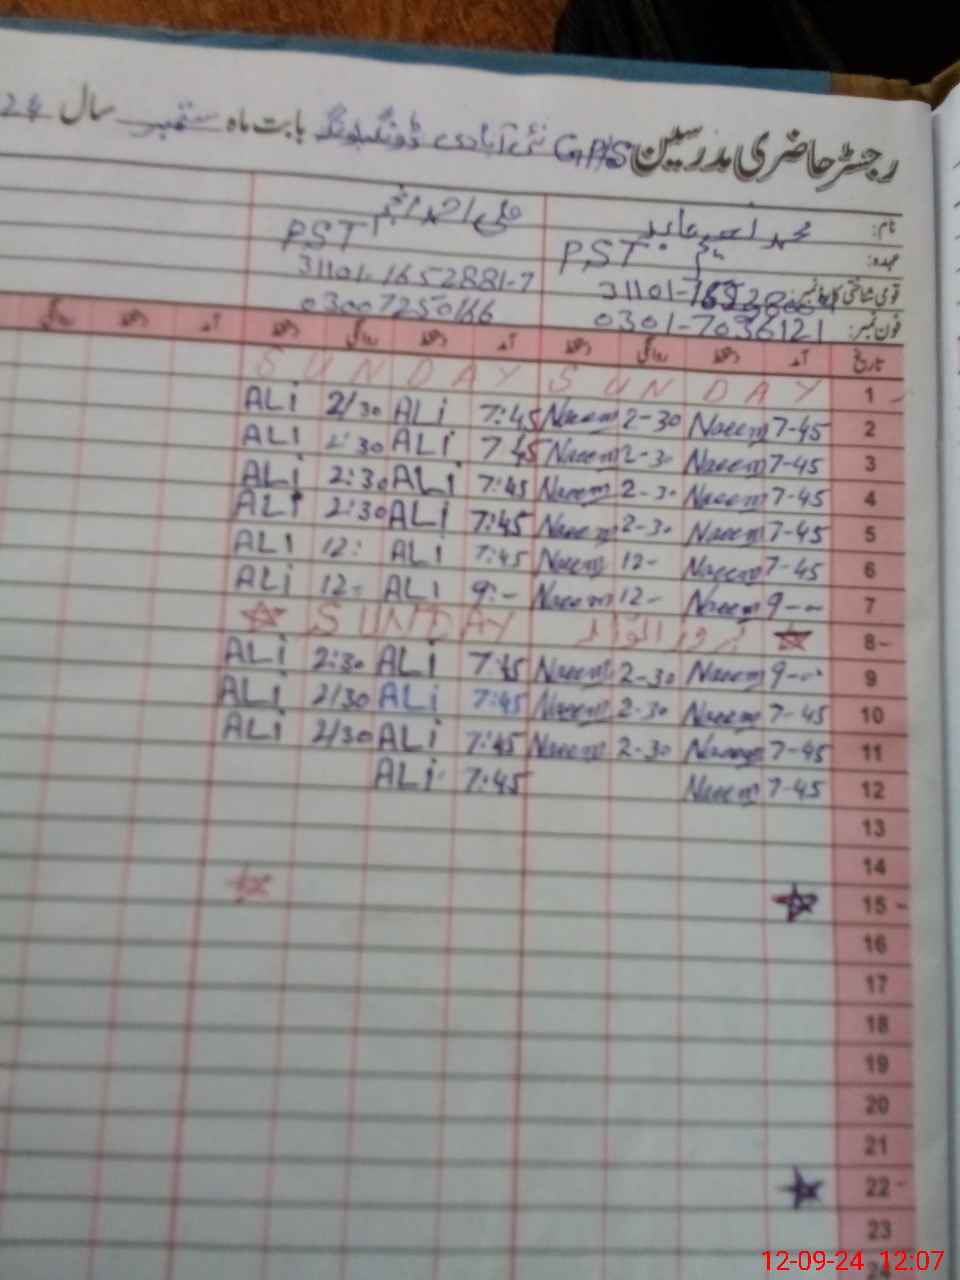 رجسٹر حاضری مدرسین GPS نئی آبادی بابت ماہ ستمبر سال 24
نام: محمد
عہدہ: PST PST
قومی شناختی کارڈ نمبر: 31101-1652881-7
فون نمبر: 0301-7036121 03007250166
تاریخ آمد دستخط روانگی دستخط آمد دستخط روانگی دستخط آمد دستخط روانگی
1 SUNDAY SUNDAY
2 7-45 Naeem 2-30 Naeem 7:45 ALi 2/30 ALi
3 7-45 Naeem 2-3. Naeem 7 45 ALi 2:30 ALI
4 7-45 Naeem 2-3. Naeem 7:45 ALi 2:30 ALi
5 7-45 Naeem 2-3. Naeem 7:45 ALi 2:30 ALi
6 7-45 Naeem 12- Naeem 7:45 ALI 12: ALI
7 9-- Naeem 12- Naeem 9:- ALi 12- ALi
8 SUNDAY
9 9-- Naeem 2-30 Naeem 7:45 ALi 2:30 ALi
10 7-45 Naeem 2-30 Naeem 7:45 ALi 2/30 ALi
11 7-45 Naeem 2-30 Naeem 7:45 ALi 2/30 ALi
12 7-45 Naeem 7:45 ALi
13
14
15
16
17
18
19
20
21
22
23
24
12-09-24 12:07